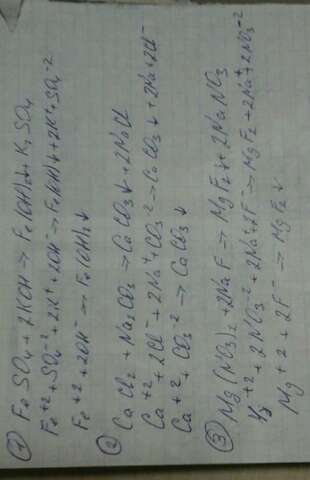 ① FeSO4 + 2KOH → Fe(OH)2↓ + K2SO4
Fe+2 + SO4-2 + 2K+ + 2OH- → Fe(OH)2↓ + 2K+ + SO4-2
Fe+2 + 2OH- → Fe(OH)2↓
② CaCl2 + Na2CO3 → CaCO3↓ + 2NaCl
Ca+2 + 2Cl- + 2Na+ + CO3-2 → CaCO3↓ + 2Na+ + 2Cl-
Ca+2 + CO3-2 → CaCO3↓
③ Mg(NO3)2 + 2NaF → MgF2↓ + 2NaNO3
+2 + 2NO3-2 + 2Na+ + 2F- → MgF2 + 2Na+ + 2NO3-2
Mg+2 + 2F- → MgF2↓